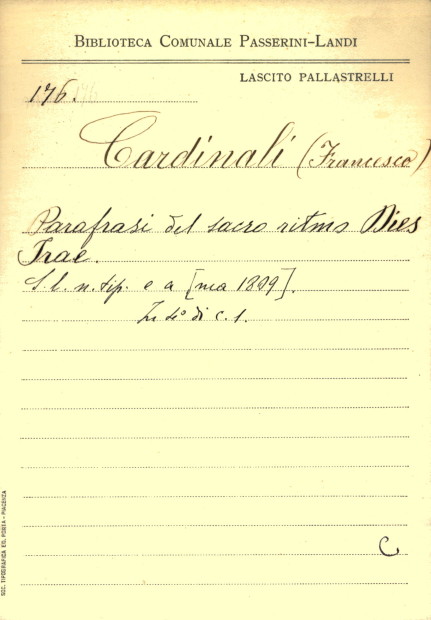 BIBLIOTECA COMUNALE PASSERINI-LANDI
LASCITO PALLASTRELLI
176.
Cardinali (Francesco)
Parafrasi del sacro ritmo Dies
Irae.
S. l. n. tip. e a [ma 1809].
In 4° di c. 1.
C
SOC. TIPOGRAFICA ED. PORTA - PIACENZA